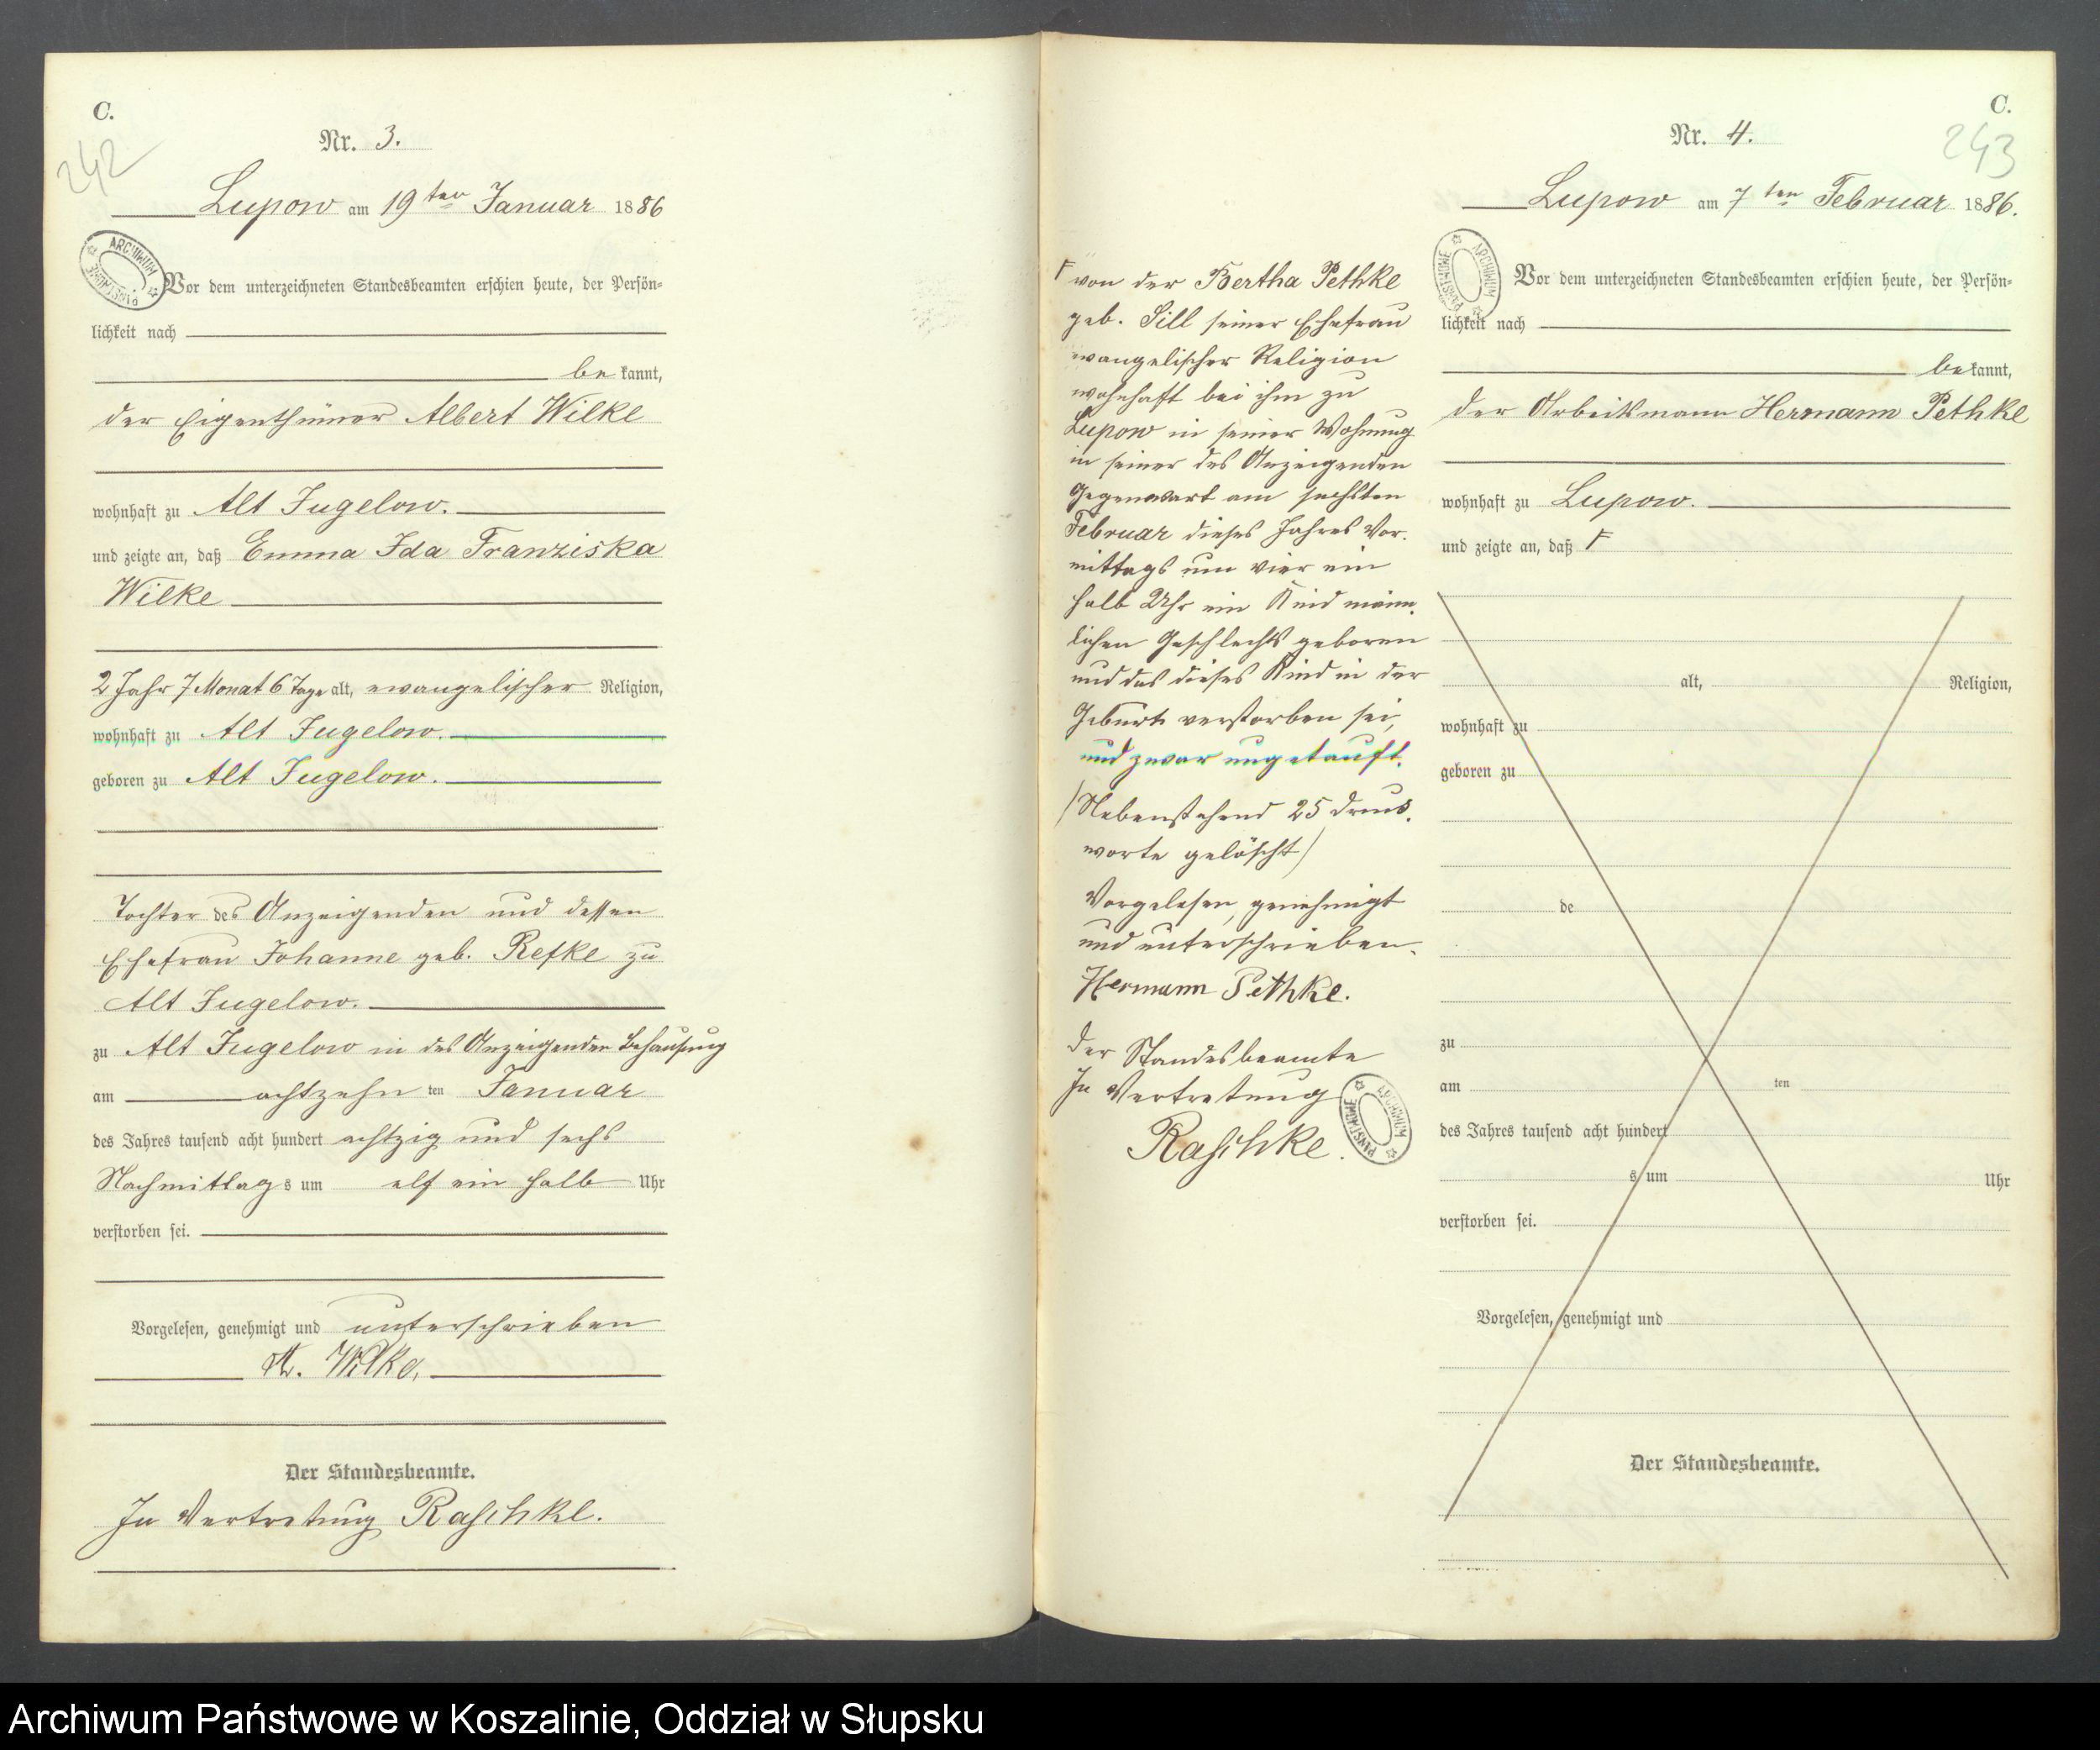 C.
242
Nr. 3.
Lupow am 19ten Januar 1886
ARCHIWUM PAŃSTWOWE
Vor dem unterzeichneten Standesbeamten erschien heute, der Persön-
lichkeit nach
be kannt,
der Eigenthümer Albert Wilke
wohnhaft zu Alt Jugelow.
und zeigte an, daß Emma Ida Franziska
Wilke
2 Jahr 7 Monat 6 Tage alt, evangelischer Religion,
wohnhaft zu Alt Jugelow.
geboren zu Alt Jugelow.
Tochter des Anzeigenden und dessen
Ehefrau Johanne geb. Refke zu
Alt Jugelow.
zu Alt Jugelow in des Anzeigenden Behausung
am achtzehn ten Januar
des Jahres tausend acht hundert achtzig und sechs
Nachmittag s um elf ein halb Uhr
verstorben sei.
Vorgelesen, genehmigt und unterschrieben
A. Wilke.
Der Standesbeamte.
In Vertretung Raschke.
von der Bertha Pethke
geb. Sill seiner Ehefrau
evangelischer Religion
wohnhaft bei ihm zu
Lupow in seiner Wohnung
in seiner des Anzeigenden
Gegenwart am sechsten
Februar dieses Jahres Vor-
mittags um vier ein
halb Uhr ein Kind männ-
lichen Geschlechts geboren
und das dieses Kind in der
Geburt verstorben sei,
und zwar ungetauft.
(Nebenstehend 25 Druck-
worte gelöscht)
Vorgelesen, genehmigt
und unterschrieben.
Hermann Pethke.
Der Standesbeamte
In Vertretung
Raschke.
ARCHIWUM PAŃSTWOWE
C.
243
Nr. 4.
Lupow am 7ten Februar 1886.
ARCHIWUM PAŃSTWOWE
Vor dem unterzeichneten Standesbeamten erschien heute, der Persön-
lichkeit nach
be kannt,
der Arbeitsmann Hermann Pethke
wohnhaft zu Lupow.
und zeigte an, daß
alt, Religion,
wohnhaft zu
geboren zu
de
zu
am ten
des Jahres tausend acht hundert
s um Uhr
verstorben sei.
Vorgelesen, genehmigt und
Der Standesbeamte.
Archiwum Państwowe w Koszalinie, Oddział w Słupsku